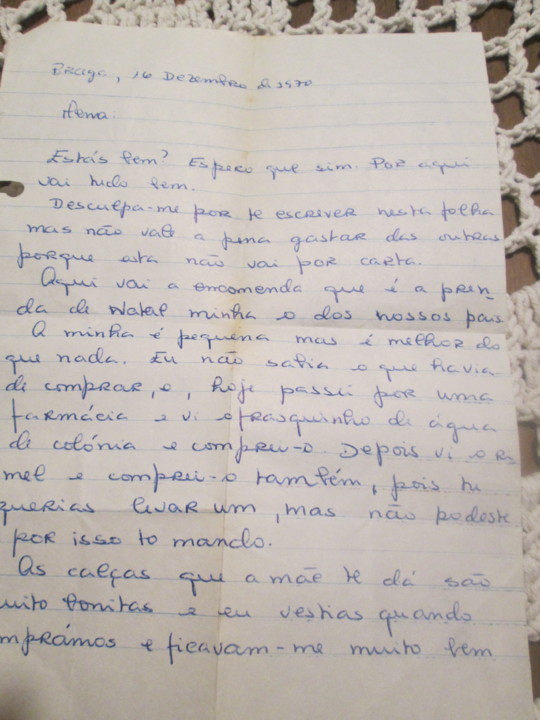 Braga, 16 Dezembro de 1970
Estás bem? Espero que sim. Por aqui
vai tudo bem.
Desculpa-me por te escrever nesta folha
mas não vale a pena gastar das outras
porque esta não vai por carta.
Aqui vai a encomenda que é a pren-
da de Natal minha e dos nossos pais
A minha é pequena mas é melhor do
que nada. Eu não sabia o que havia
de comprar, e, hoje passei por uma
farmácia e vi o frasquinho de água
de colónia e comprei-o. Depois vi o rí
mel e comprei-o também, pois tu
querias levar um, mas não podeste
por isso to mando.
As calças que a mãe te dá são
uito bonitas e eu vestias quando
mprámos e ficavam-me muito bem